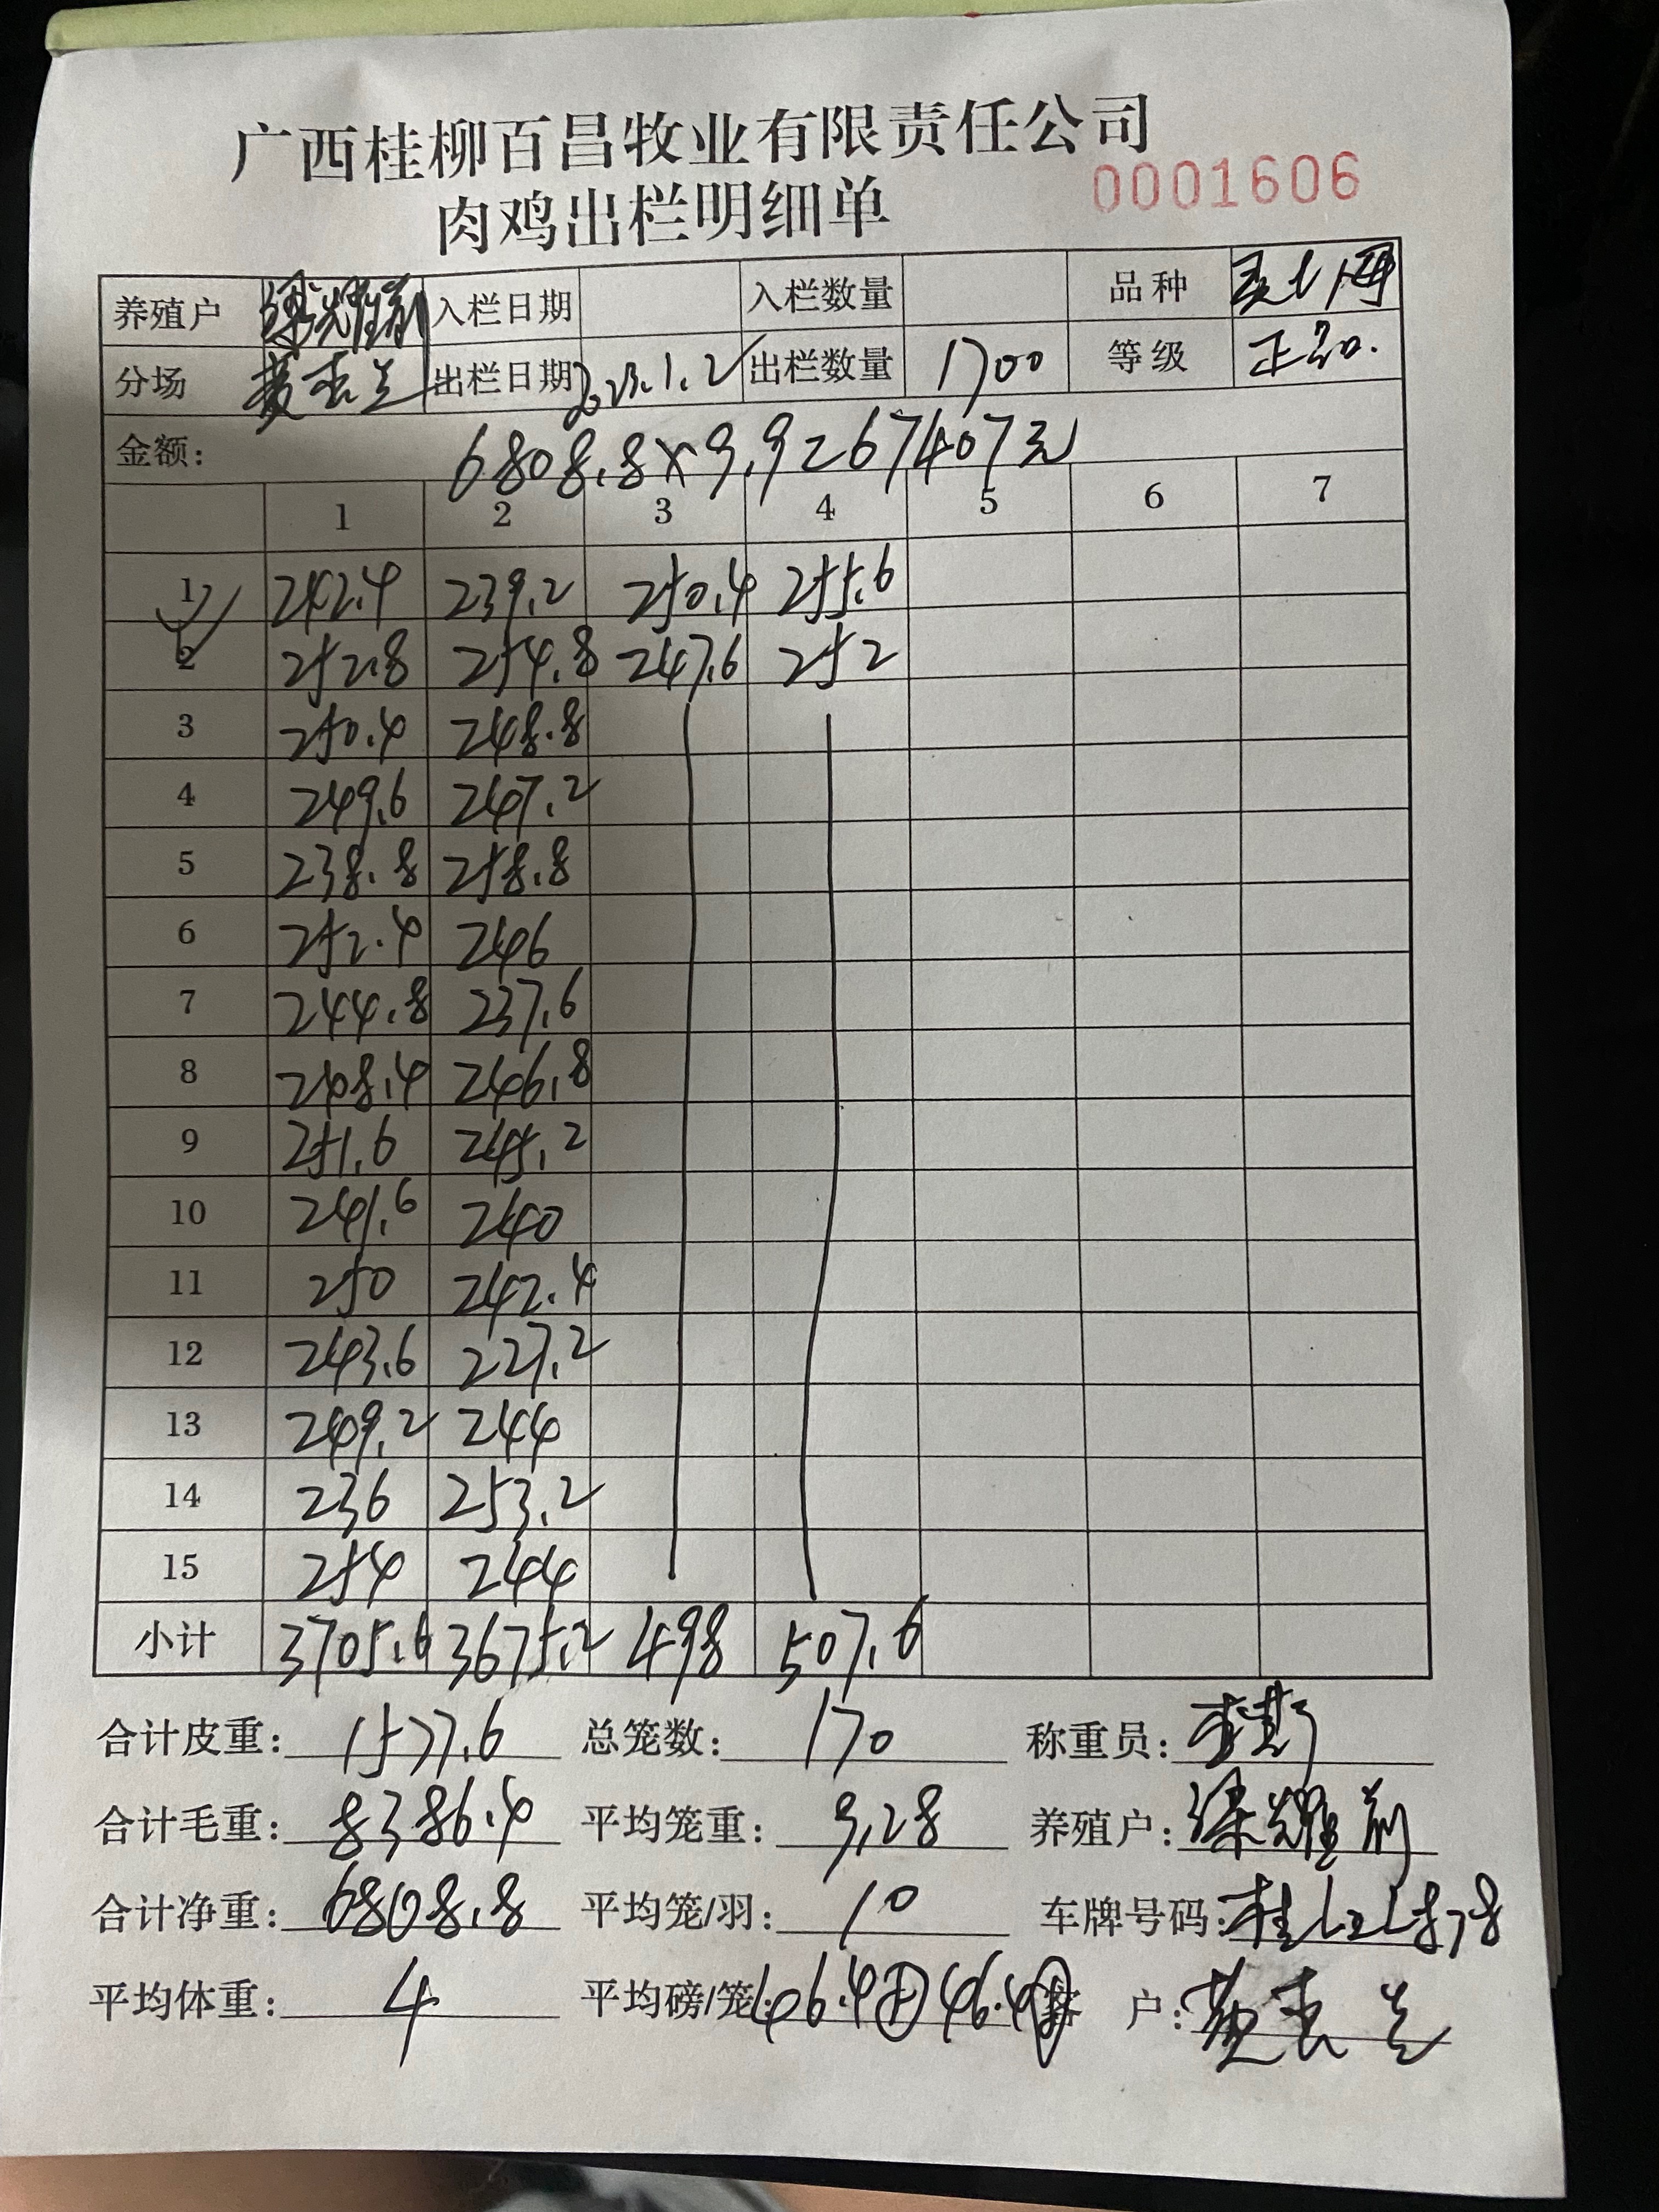 广西桂柳百昌牧业有限责任公司
肉鸡出栏明细单 0001606
养殖户 梁耀前 入栏日期 入栏数量 品种
分场 黄玉兰 出栏日期 2023.1.2 出栏数量 1700 等级 正品.
金额: 6808.8×9.9=67407元
1 2 3 4 5 6 7
1 242.4 239.2 250.4 255.6
2 252.8 254.8 247.6 252
3 250.4 248.8
4 249.6 247.2
5 238.8 258.8
6 252.4 246
7 244.8 237.6
8 248.4 246.8
9 251.6 245.2
10 241.6 240
11 250 242.4
12 243.6 227.2
13 249.2 244
14 236 253.2
15 254 244
小计 3705.6 3675.2 498 507.6
合计皮重: 1577.6 总笼数: 170 称重员:
合计毛重: 8386.4 平均笼重: 9.28 养殖户: 梁耀前
合计净重: 6808.8 平均笼/羽: 10 车牌号码:
平均体重: 4 平均磅/笼: 户: 黄玉兰